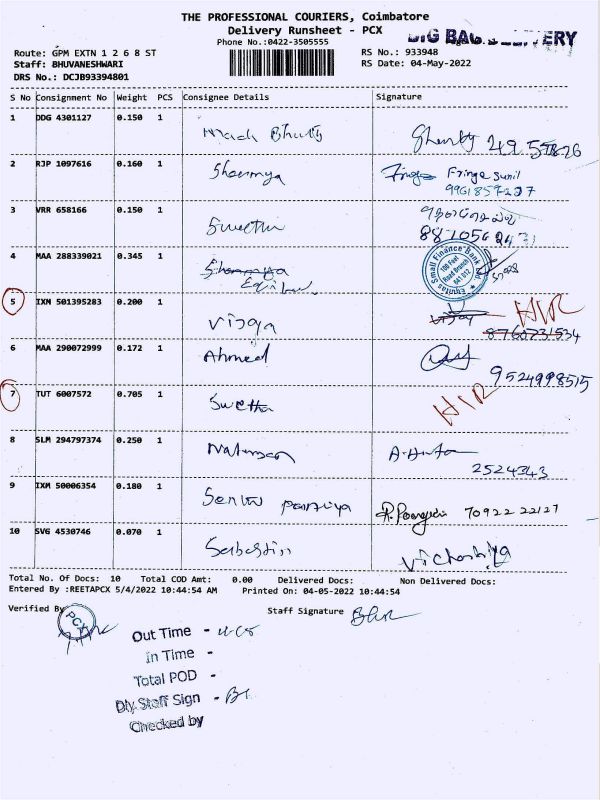 THE PROFESSIONAL COURIERS, Coimbatore
Delivery Runsheet - PCX
BIG BAG DELIVERY
Phone No.:0422-3505555
Route: GPM EXTN 1 2 6 8 ST
RS No.: 933948
Staff: BHUVANESHWARI
RS Date: 04-May-2022
DRS No.: DCJB93394801
S No Consignment No Weight PCS Consignee Details Signature
1 DDG 4301127 0.150 1
2 RJP 1097616 0.160 1 Sharmya Fringe Sunil
3 VRR 658166 0.150 1 Swetha
4 MAA 288339021 0.345 1
Equitas Small Finance Bank
100 Feet
Road Branch
641 012
5 IXM 501395283 0.200 1 Vijaya Vijay HIR
8760731534
6 MAA 290072999 0.172 1 Ahmed
9524998515
7 TUT 6007572 0.705 1 Swetha HIR
8 SLM 294797374 0.250 1 Natarajan
2524343
9 IXM 50006354 0.180 1 70922 22127
10 SVG 4530746 0.070 1 Sebastin
Total No. Of Docs: 10 Total COD Amt: 0.00 Delivered Docs: Non Delivered Docs:
Entered By :REETAPCX 5/4/2022 10:44:54 AM Printed On: 04-05-2022 10:44:54
Verified By Staff Signature
PCX
Out Time -
In Time -
Total POD -
Dly. Staff Sign -
Checked by